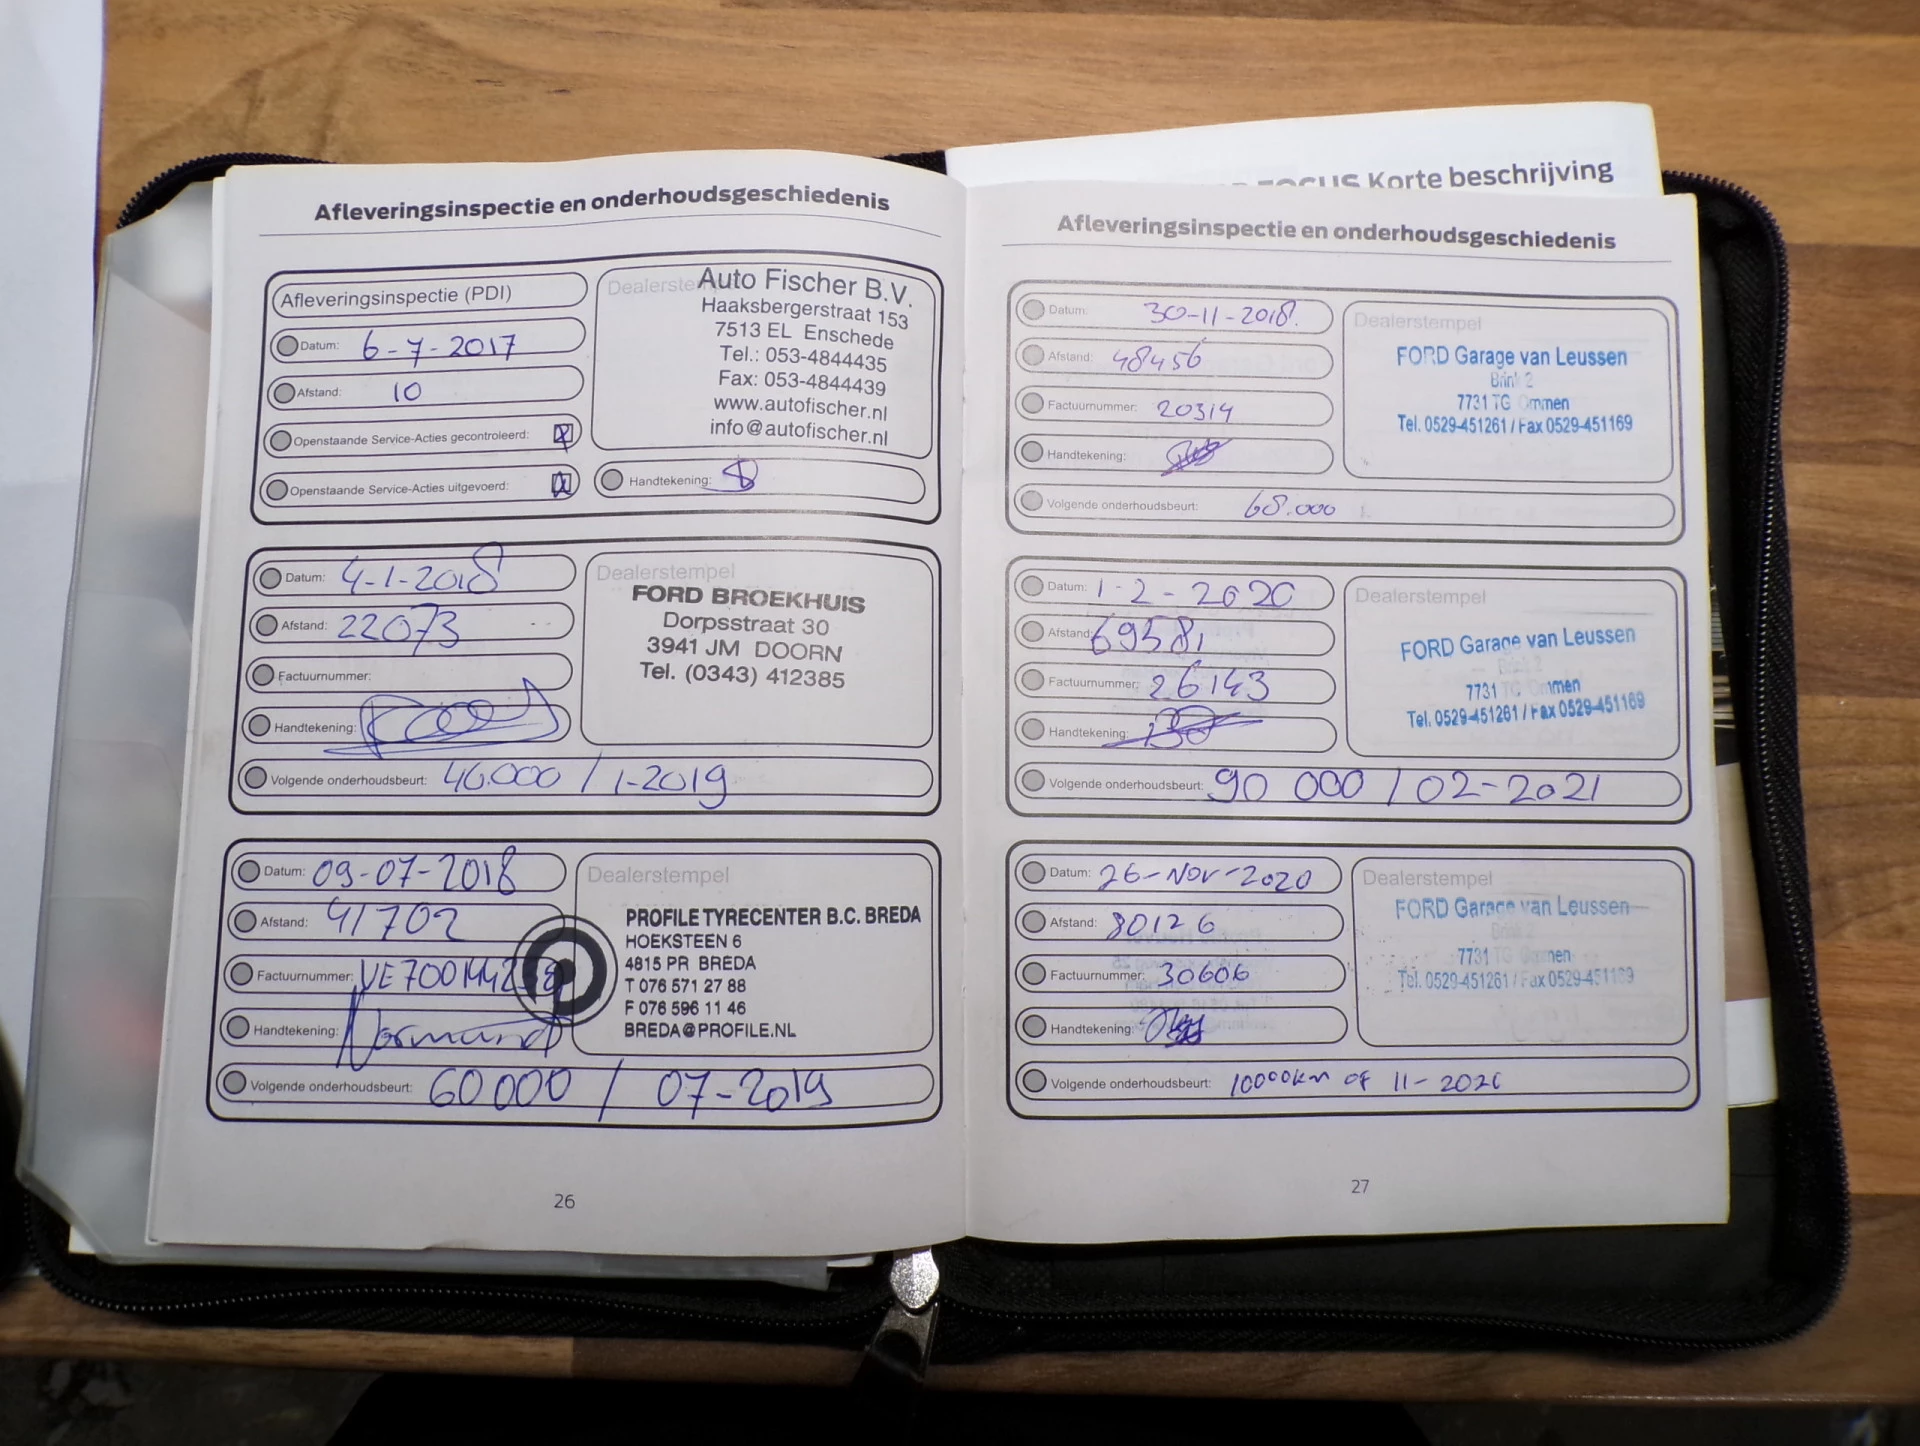 FOCUS Korte beschrijving
Afleveringsinspectie en onderhoudsgeschiedenis
Afleveringsinspectie (PDI)
Datum: 6-7-2017
Afstand: 10
Openstaande Service-Acties gecontroleerd:
Openstaande Service-Acties uitgevoerd:
Auto Fischer B.V.
Haaksbergerstraat 153
7513 EL Enschede
Tel.: 053-4844435
Fax: 053-4844439
www.autofischer.nl
info@autofischer.nl
Handtekening:
Datum: 4-1-2018
Afstand: 22073
Factuurnummer:
Handtekening:
Volgende onderhoudsbeurt: 40.000 / 1-2019
Dealerstempel
FORD BROEKHUIS
Dorpsstraat 30
3941 JM DOORN
Tel. (0343) 412385
Datum: 09-07-2018
Afstand: 41702
Factuurnummer:
Handtekening:
Volgende onderhoudsbeurt: 60000 / 07-2019
Dealerstempel
PROFILE TYRECENTER B.C. BREDA
HOEKSTEEN 6
4815 PR BREDA
T 076 571 27 88
F 076 596 11 46
BREDA@PROFILE.NL
26
Afleveringsinspectie en onderhoudsgeschiedenis
Datum: 30-11-2018.
Afstand: 48456
Factuurnummer: 20314
Handtekening:
Volgende onderhoudsbeurt: 68.000
Dealerstempel
FORD Garage van Leussen
Brink 2
7731 TG Ommen
Tel. 0529-451261 / Fax 0529-451169
Datum: 1-2-2020
Afstand: 69581
Factuurnummer: 26143
Handtekening:
Volgende onderhoudsbeurt: 90 000 / 02-2021
Dealerstempel
FORD Garage van Leussen
Brink 2
7731 TG Ommen
Tel. 0529-451261 / Fax 0529-451169
Datum: 26-Nov-2020
Afstand: 80126
Factuurnummer: 30606
Handtekening:
Volgende onderhoudsbeurt: 10000km of 11-202
Dealerstempel
FORD Garage van Leussen
7731 TG Ommen
Tel. 0529-451261 / Fax 0529-451169
27